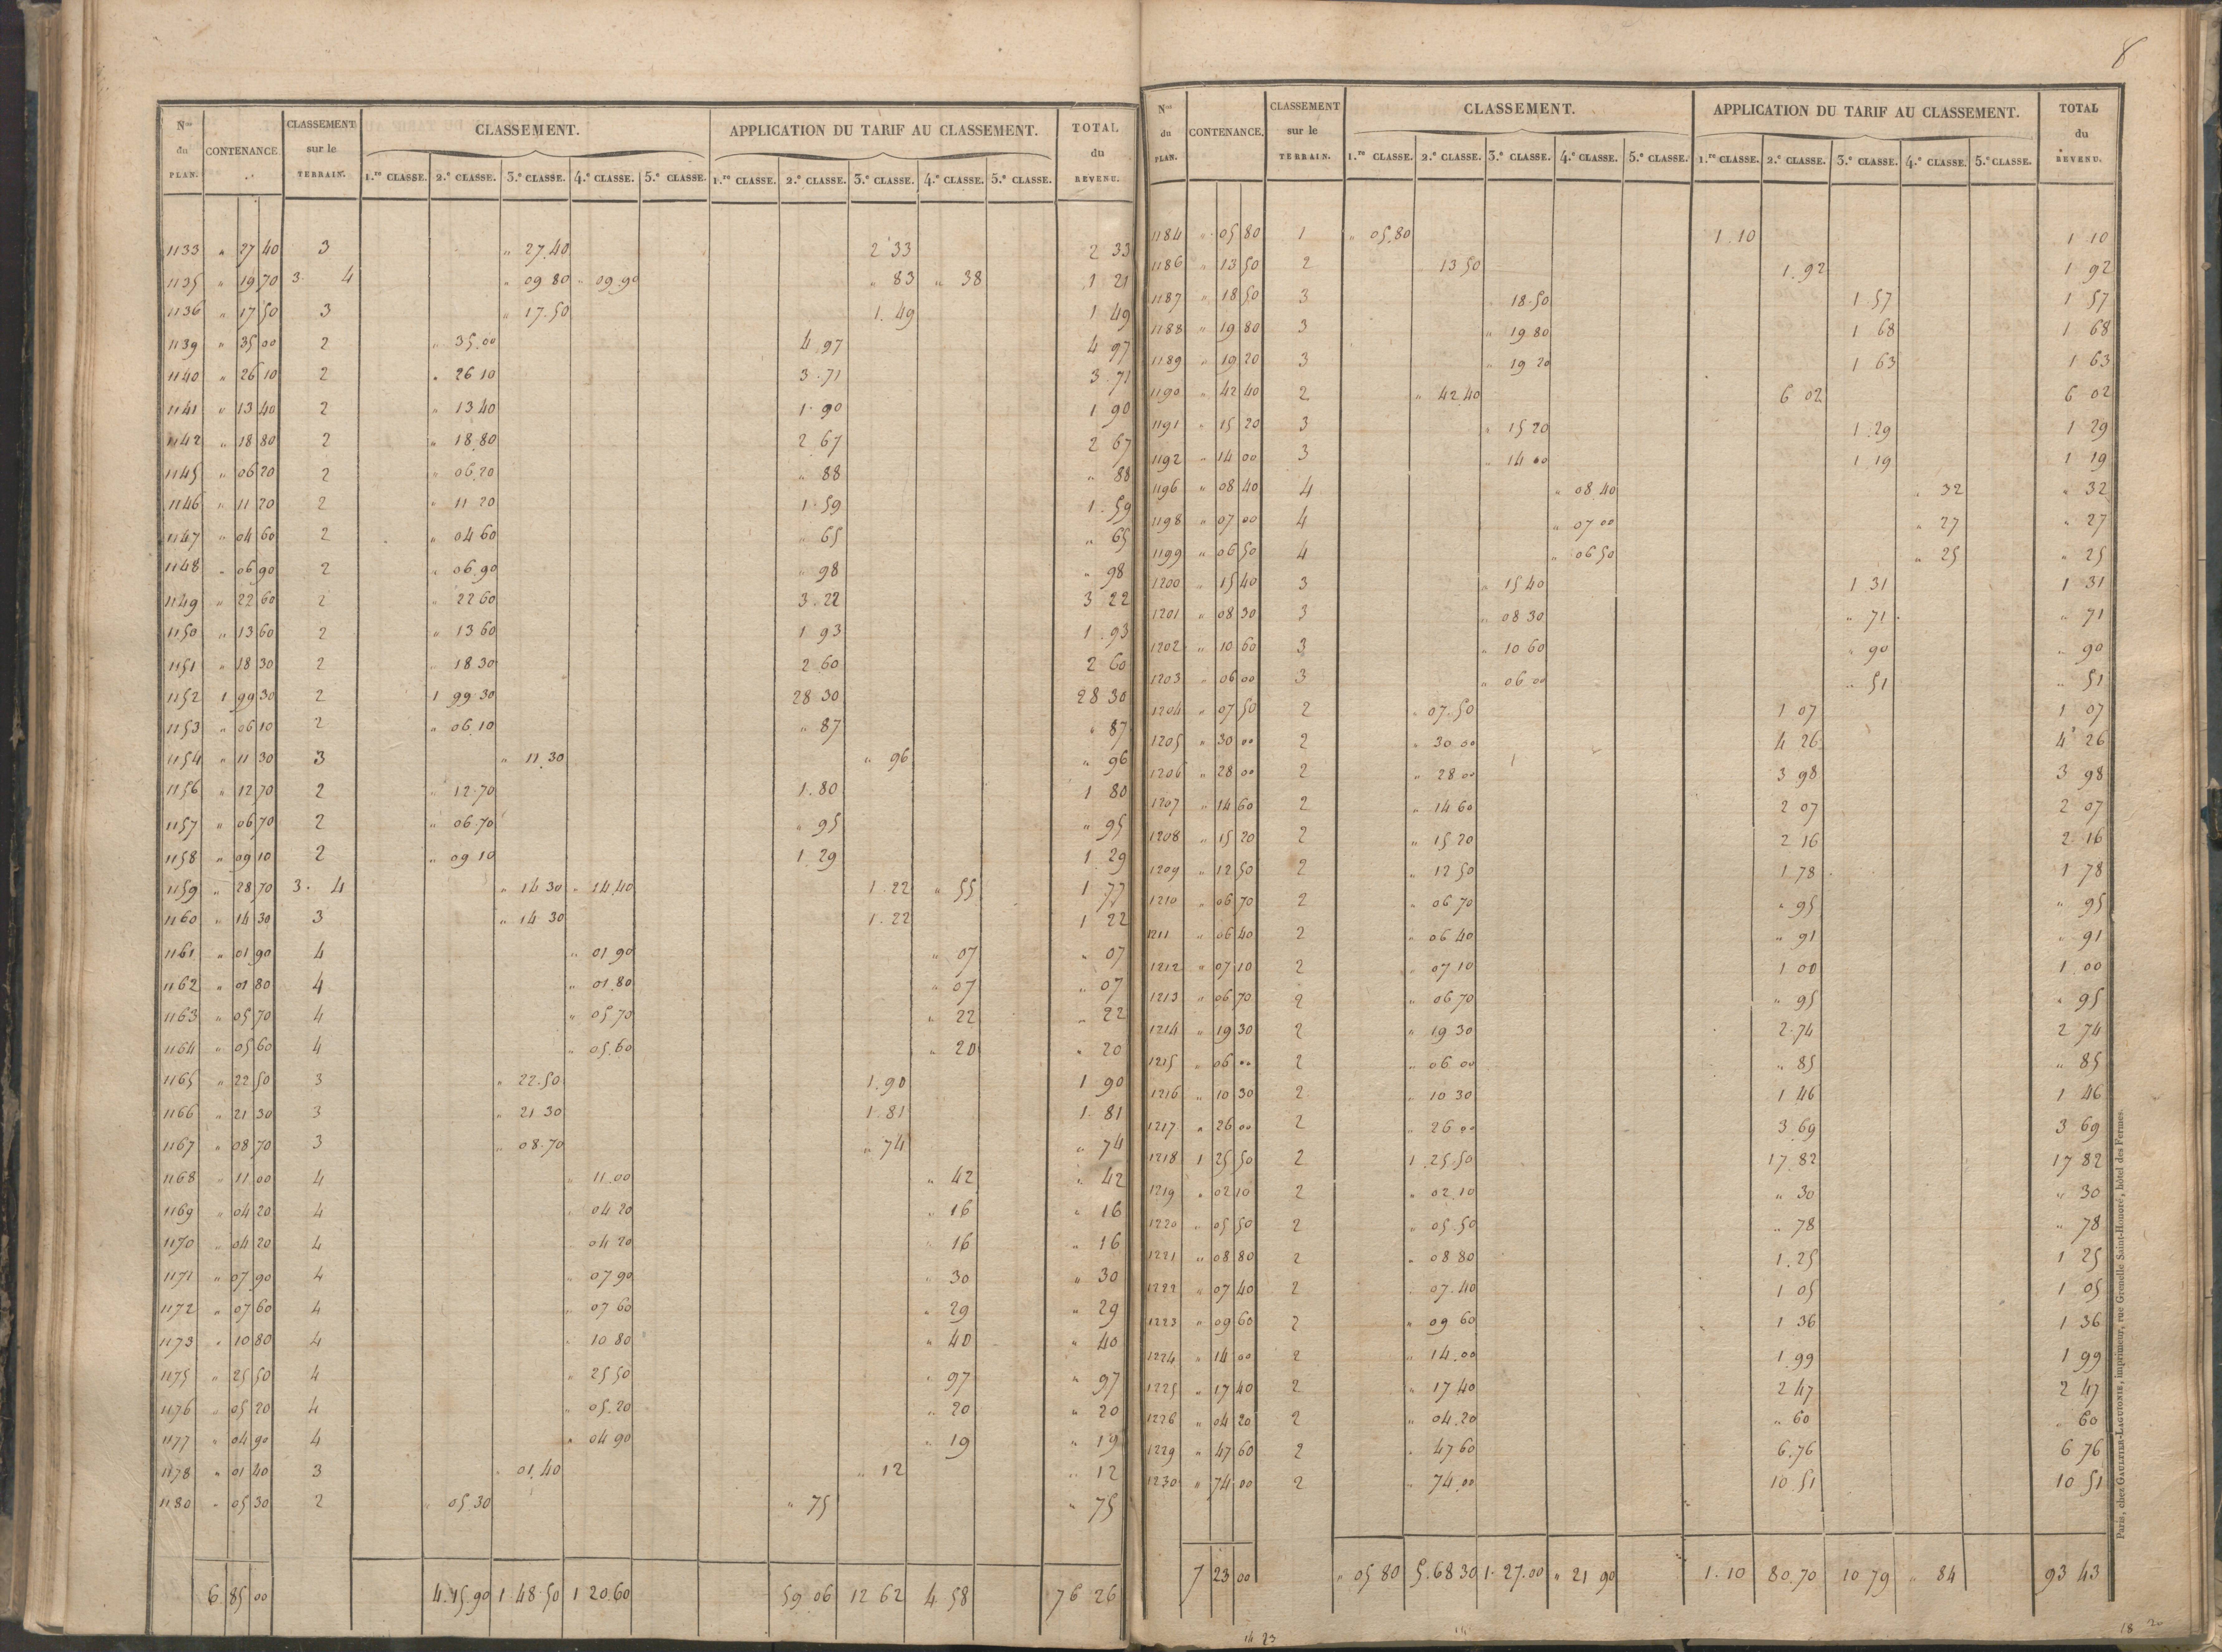 8
Nos du PLAN. CONTENANCE. CLASSEMENT sur le TERRAIN. CLASSEMENT. APPLICATION DU TARIF AU CLASSEMENT. TOTAL du REVENU.
1.re CLASSE. 2.e CLASSE. 3.e CLASSE. 4.e CLASSE. 5.e CLASSE. 1.re CLASSE. 2.e CLASSE. 3.e CLASSE. 4.e CLASSE. 5.e CLASSE.
1133 " 27 40 3 " 27.40 2 33 2 33
1135 " 19 70 3. 4 " 09 80 " 09.90 " 83 " 38 1 21
1136 " 17 50 3 " 17.50 1.49 1 49
1139 " 35 00 2 " 35.00 4.97 4 97
1140 " 26 10 2 " 26 10 3.71 3.71
1141 " 13 40 2 " 13 40 1.90 1 90
1142 " 18 80 2 " 18.80 2 67 2 67
1145 " 06 20 2 " 06.20 " 88 " 88
1146 " 11 20 2 " 11 20 1.59 1.59
1147 " 04 60 2 " 04 60 " 65 " 65
1148 " 06 90 2 " 06.90 " 98 " 98
1149 " 22 60 2 " 22 60 3.22 3 22
1150 " 13 60 2 " 13 60 1 93 1.93
1151 " 18 30 2 " 18 30 2 60 2 60
1152 1 99 30 2 1 99 30 28 30 28 30
1153 " 06 10 2 " 06.10 " 87 " 87
1154 " 11 30 3 " 11.30 " 96 " 96
1156 " 12 70 2 " 12.70 1.80 1 80
1157 " 06 70 2 " 06.70 " 95 " 95
1158 " 09 10 2 " 09 10 1.29 1 29
1159 " 28 70 3. 4 " 14 30 " 14.40 1.22 " 55 1 77
1160 " 14 30 3 " 14 30 1.22 1 22
1161 " 01 90 4 " 01 90 " 07 " 07
1162 " 01 80 4 " 01.80 " 07 " 07
1163 " 05 70 4 " 05 70 " 22 " 22
1164 " 05 60 4 " 05.60 " 20 " 20
1165 " 22 50 3 " 22.50 1.90 1 90
1166 " 21 30 3 " 21 30 1.81 1.81
1167 " 08 70 3 " 08.70 " 74 " 74
1168 " 11 00 4 " 11.00 " 42 " 42
1169 " 04 20 4 " 04 20 " 16 " 16
1170 " 04 20 4 " 04 20 " 16 " 16
1171 " 07 90 4 " 07 90 " 30 " 30
1172 " 07 60 4 " 07 60 " 29 " 29
1173 " 10 80 4 " 10 80 " 40 " 40
1175 " 25 50 4 " 25 50 " 97 " 97
1176 " 05 20 4 " 05.20 " 20 " 20
1177 " 04 90 4 " 04 90 " 19 " 19
1178 " 01 40 3 " 01.40 " 12 " 12
1180 " 05 30 2 " 05.30 " 75 " 75
6 85 00 4.15.90 1 48 50 1 20.60 59 06 12 62 4 58 76 26
Nos du PLAN. CONTENANCE. CLASSEMENT sur le TERRAIN. CLASSEMENT. APPLICATION DU TARIF AU CLASSEMENT. TOTAL du REVENU.
1.re CLASSE. 2.e CLASSE. 3.e CLASSE. 4.e CLASSE. 5.e CLASSE. 1.re CLASSE. 2.e CLASSE. 3.e CLASSE. 4.e CLASSE. 5.e CLASSE.
1184 " 05 80 1 " 05.80 1.10 1 10
1186 " 13 50 2 13 50 1.92 1 92
1187 " 18 50 3 " 18.50 1 57 1 57
1188 " 19 80 3 " 19 80 1 68 1 68
1189 " 19 20 3 " 19 20 1 63 1 63
1190 " 42 40 2 " 42.40 6 02 6 02
1191 " 15 20 3 " 15 20 1.29 1 29
1192 " 14 00 3 " 14 00 1 19 1 19
1196 " 08 40 4 " 08.40 " 32 " 32
1198 " 07 00 4 " 07 00 " 27 " 27
1199 " 06 50 4 " 06 50 " 25 " 25
1200 " 15 40 3 " 15 40 1 31 1 31
1201 " 08 30 3 " 08 30 " 71 " 71
1202 " 10 60 3 " 10 60 " 90 " 90
1203 " 06 00 3 " 06 00 " 51 " 51
1204 " 07 50 2 " 07.50 1 07 1 07
1205 " 30 00 2 " 30.00 4 26 4 26
1206 " 28 00 2 " 28 00 3 98 3 98
1207 " 14 60 2 " 14 60 2 07 2 07
1208 " 15 20 2 " 15 20 2 16 2 16
1209 " 12 50 2 " 12 50 1 78 1 78
1210 " 06 70 2 " 06 70 " 95 " 95
1211 " 06 40 2 " 06 40 " 91 " 91
1212 " 07 10 2 " 07 10 1 00 1.00
1213 " 06 70 2 " 06 70 " 95 " 95
1214 " 19 30 2 " 19 30 2.74 2 74
1215 " 06 00 2 " 06 00 " 85 " 85
1216 " 10 30 2 " 10 30 1 46 1 46
1217 " 26 00 2 " 26 00 3 69 3 69
1218 1 25 50 2 1.25.50 17.82 17 82
1219 " 02 10 2 " 02.10 " 30 " 30
1220 " 05 50 2 " 05.50 " 78 " 78
1221 " 08 80 2 " 08 80 1.25 1 25
1222 " 07 40 2 " 07.40 1 05 1 05
1223 " 09 60 2 " 09 60 1 36 1 36
1224 " 14 00 2 " 14.00 1.99 1 99
1225 " 17 40 2 " 17 40 2 47 2 47
1226 " 04 20 2 " 04.20 " 60 " 60
1229 " 47 60 2 " 47 60 6.76 6 76
1230 " 74 00 2 " 74.00 10 51 10 51
7 23 00 " 05 80 5.68 30 1.27.00 " 21 90 1.10 80.70 10 79 " 84 93 43
Paris, chez GAULTIER-LAGUIONIE, imprimeur, rue Grenelle Saint-Honoré, hôtel des Fermes.
14 23 14 18 20